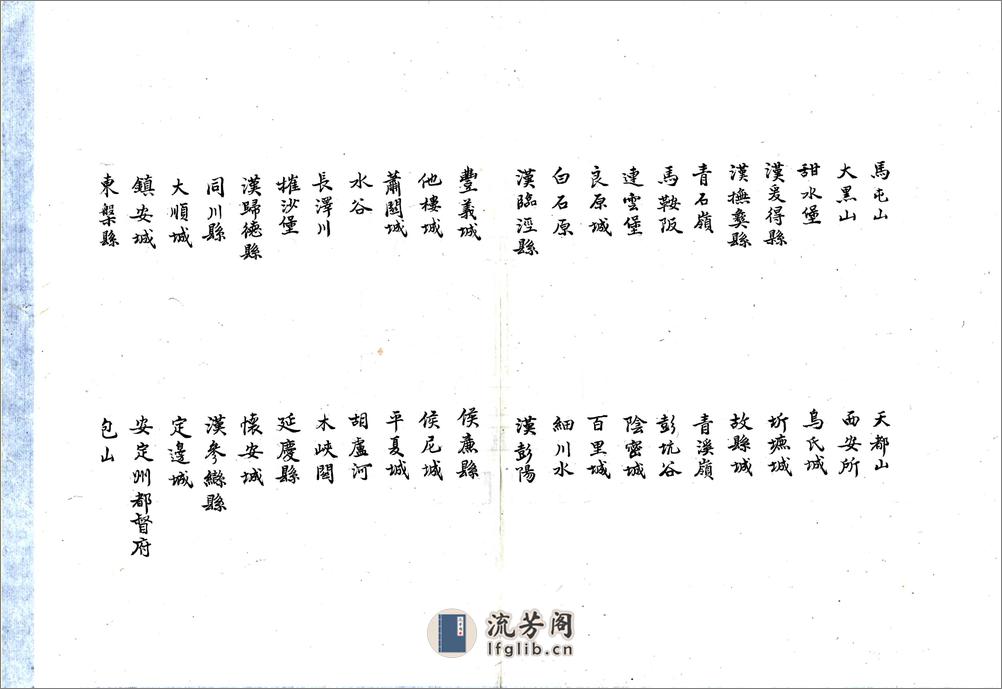 馬屯山　天都山
大黑山　西安所
甜水堡　烏氏城
漢爰得縣　圻墌城
漢撫彝縣　故縣城
青石嶺　青溪嶺
馬鞍阪　彭坑谷
連雲堡　陰密城
良原城　百里城
白石原　細川水
漢臨涇縣　漢彭陽
豐義城　侯廉縣
他樓城　侯尼城
蕭關城　平夏城
水谷　胡盧河
長澤川　木峽關
摧沙堡　延慶縣
漢歸德縣　懷安城
同川縣　漢參䜌縣
大順城　定邊城
鎮安城　安定州都督府
東槃縣　包山
流芳阁
lfglib.cn